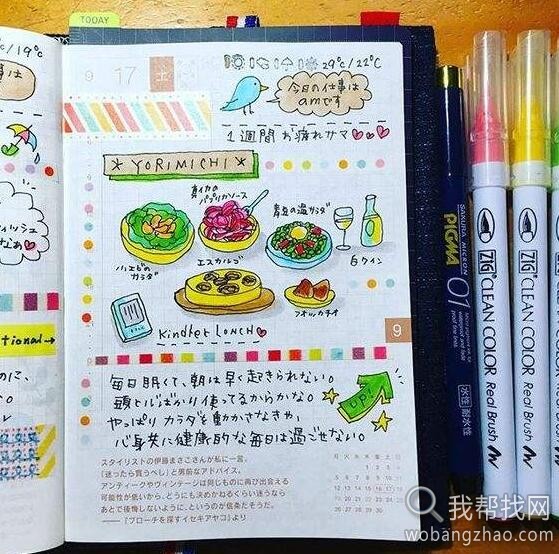 TODAY
℃/19℃
9 17 土
29℃/22℃
今日の仕事は
amです
1週間お疲れサマ
YORIMICHI
真イカの
パプリカソース
青豆の温サラダ
小エビの
サラダ
エスカルゴ
白ワイン
フォカッチオ
Kindter LUNCH
9
毎日眠くて、朝は早く起きられない。
頭ばかり使ってるからかな。
やっぱりカラダを動かさなきゃ
心身共に健康的な毎日は過ごせない。
UP!
スタイリストの伊藤まさこさんが私に一言。
「迷ったら買うべし」と男前なアドバイス。
アンティークやヴィンテージは同じものに再び出会える
可能性が低いから、どうにも決めかねるくらい迷うなら
あとで後悔しないように、というのが信条だそうだ。
──『ブローチを探すイセキアヤコ』より
月 火 水 木 金 土 日
tional→
のに、
SAKURA MICRON
PIGMA 01
waterproof and fade
proof fine lines
水性 耐水性
ZIG CLEAN COLOR Real Brush
ZIG CLEAN COLOR Real Brush
我帮找网
wobangzhao.com